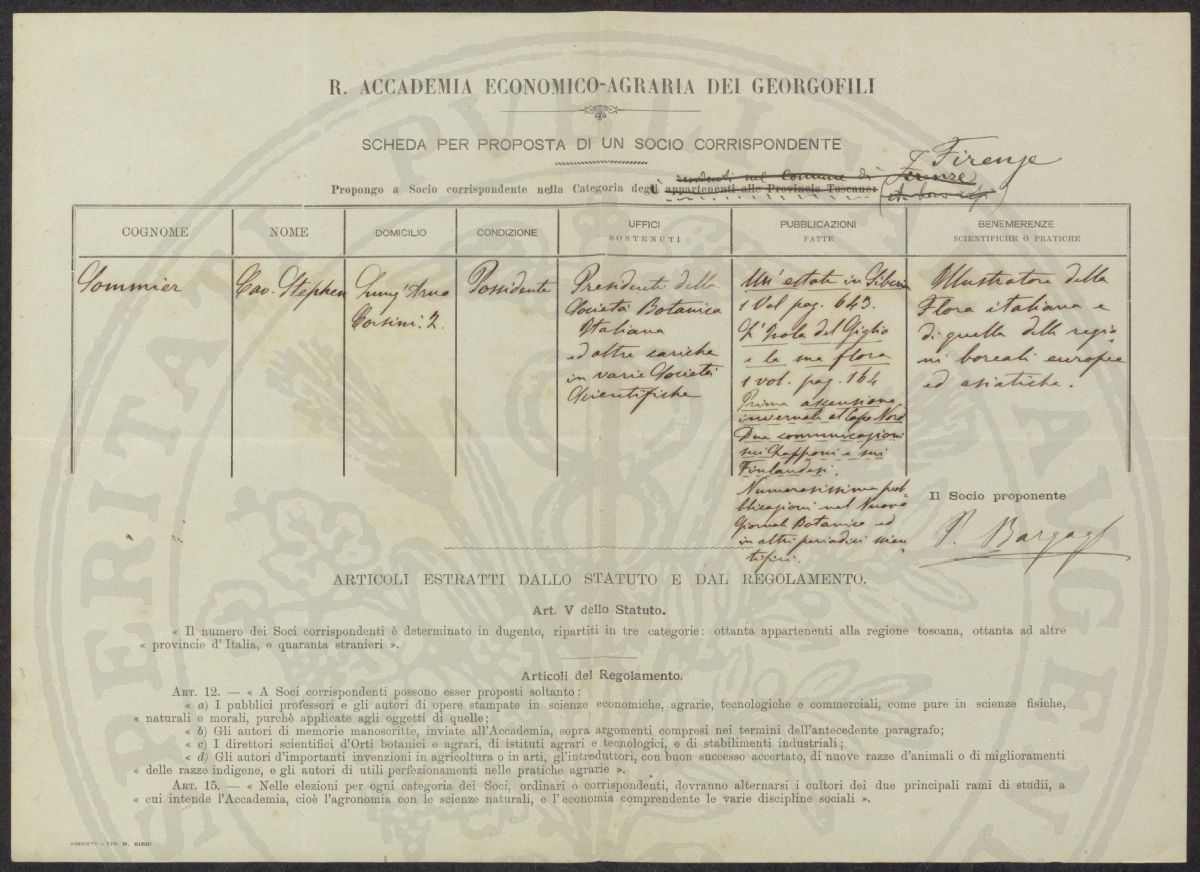 R. ACCADEMIA ECONOMICO-AGRARIA DEI GEORGOFILI
SCHEDA PER PROPOSTA DI UN SOCIO CORRISPONDENTE
Firenze
residenti nel Comune di Firenze
Propongo a Socio corrispondente nella Categoria degli appartenenti alle Provincie Toscane:
COGNOME
NOME
DOMICILIO
CONDIZIONE
UFFICI
SOSTENUTI
PUBBLICAZIONI
FATTE
BENEMERENZE
SCIENTIFICHE O PRATICHE
Sommier
Cav. Stephen
Lung'Arno
Corsini. 2.
Possidente
Presidente della
Società Botanica
Italiana
ed altre cariche
in varie Società
Scientifiche
Un' estate in Siberia
1 Vol pag. 643.
L'Isola del Giglio
e la sua flora
1 vol. pag. 164
Prima ascensione
invernale al Capo Nord
Due comunicazioni
sui Lapponi e sui
Finlandesi.
Numerosissime pub-
blicazioni nel Nuovo
Giornale Botanico ed
in altri periodici scien
tifici.
Illustratore della
Flora italiana e
di quella delle regio
ni boreali europee
ed asiatiche.
Il Socio proponente
P. Bargagli
ARTICOLI ESTRATTI DALLO STATUTO E DAL REGOLAMENTO.
Art. V dello Statuto.
« Il numero dei Soci corrispondenti è determinato in dugento, ripartiti in tre categorie: ottanta appartenenti alla regione toscana, ottanta ad altre
« provincie d'Italia, e quaranta stranieri ».
Articoli del Regolamento.
ART. 12. — « A Soci corrispondenti possono esser proposti soltanto:
« a) I pubblici professori e gli autori di opere stampate in scienze economiche, agrarie, tecnologiche e commerciali, come pure in scienze fisiche,
« naturali e morali, purchè applicate agli oggetti di quelle;
« b) Gli autori di memorie manoscritte, inviate all'Accademia, sopra argomenti compresi nei termini dell'antecedente paragrafo;
« c) I direttori scientifici d'Orti botanici e agrari, di istituti agrari e tecnologici, e di stabilimenti industriali;
« d) Gli autori d'importanti invenzioni in agricoltura o in arti, gl'introduttori, con buon successo accertato, di nuove razze d'animali o di miglioramenti
« delle razze indigene, e gli autori di utili perfezionamenti nelle pratiche agrarie ».
ART. 15. — « Nelle elezioni per ogni categoria dei Soci, ordinari o corrispondenti, dovranno alternarsi i cultori dei due principali rami di studii, a
« cui intende l'Accademia, cioè l'agronomia con le scienze naturali, e l'economia comprendente le varie discipline sociali ».
FIRENZE - TIP. M. RICCI
PROSPERITATI PUBLICAE AVGENDAE